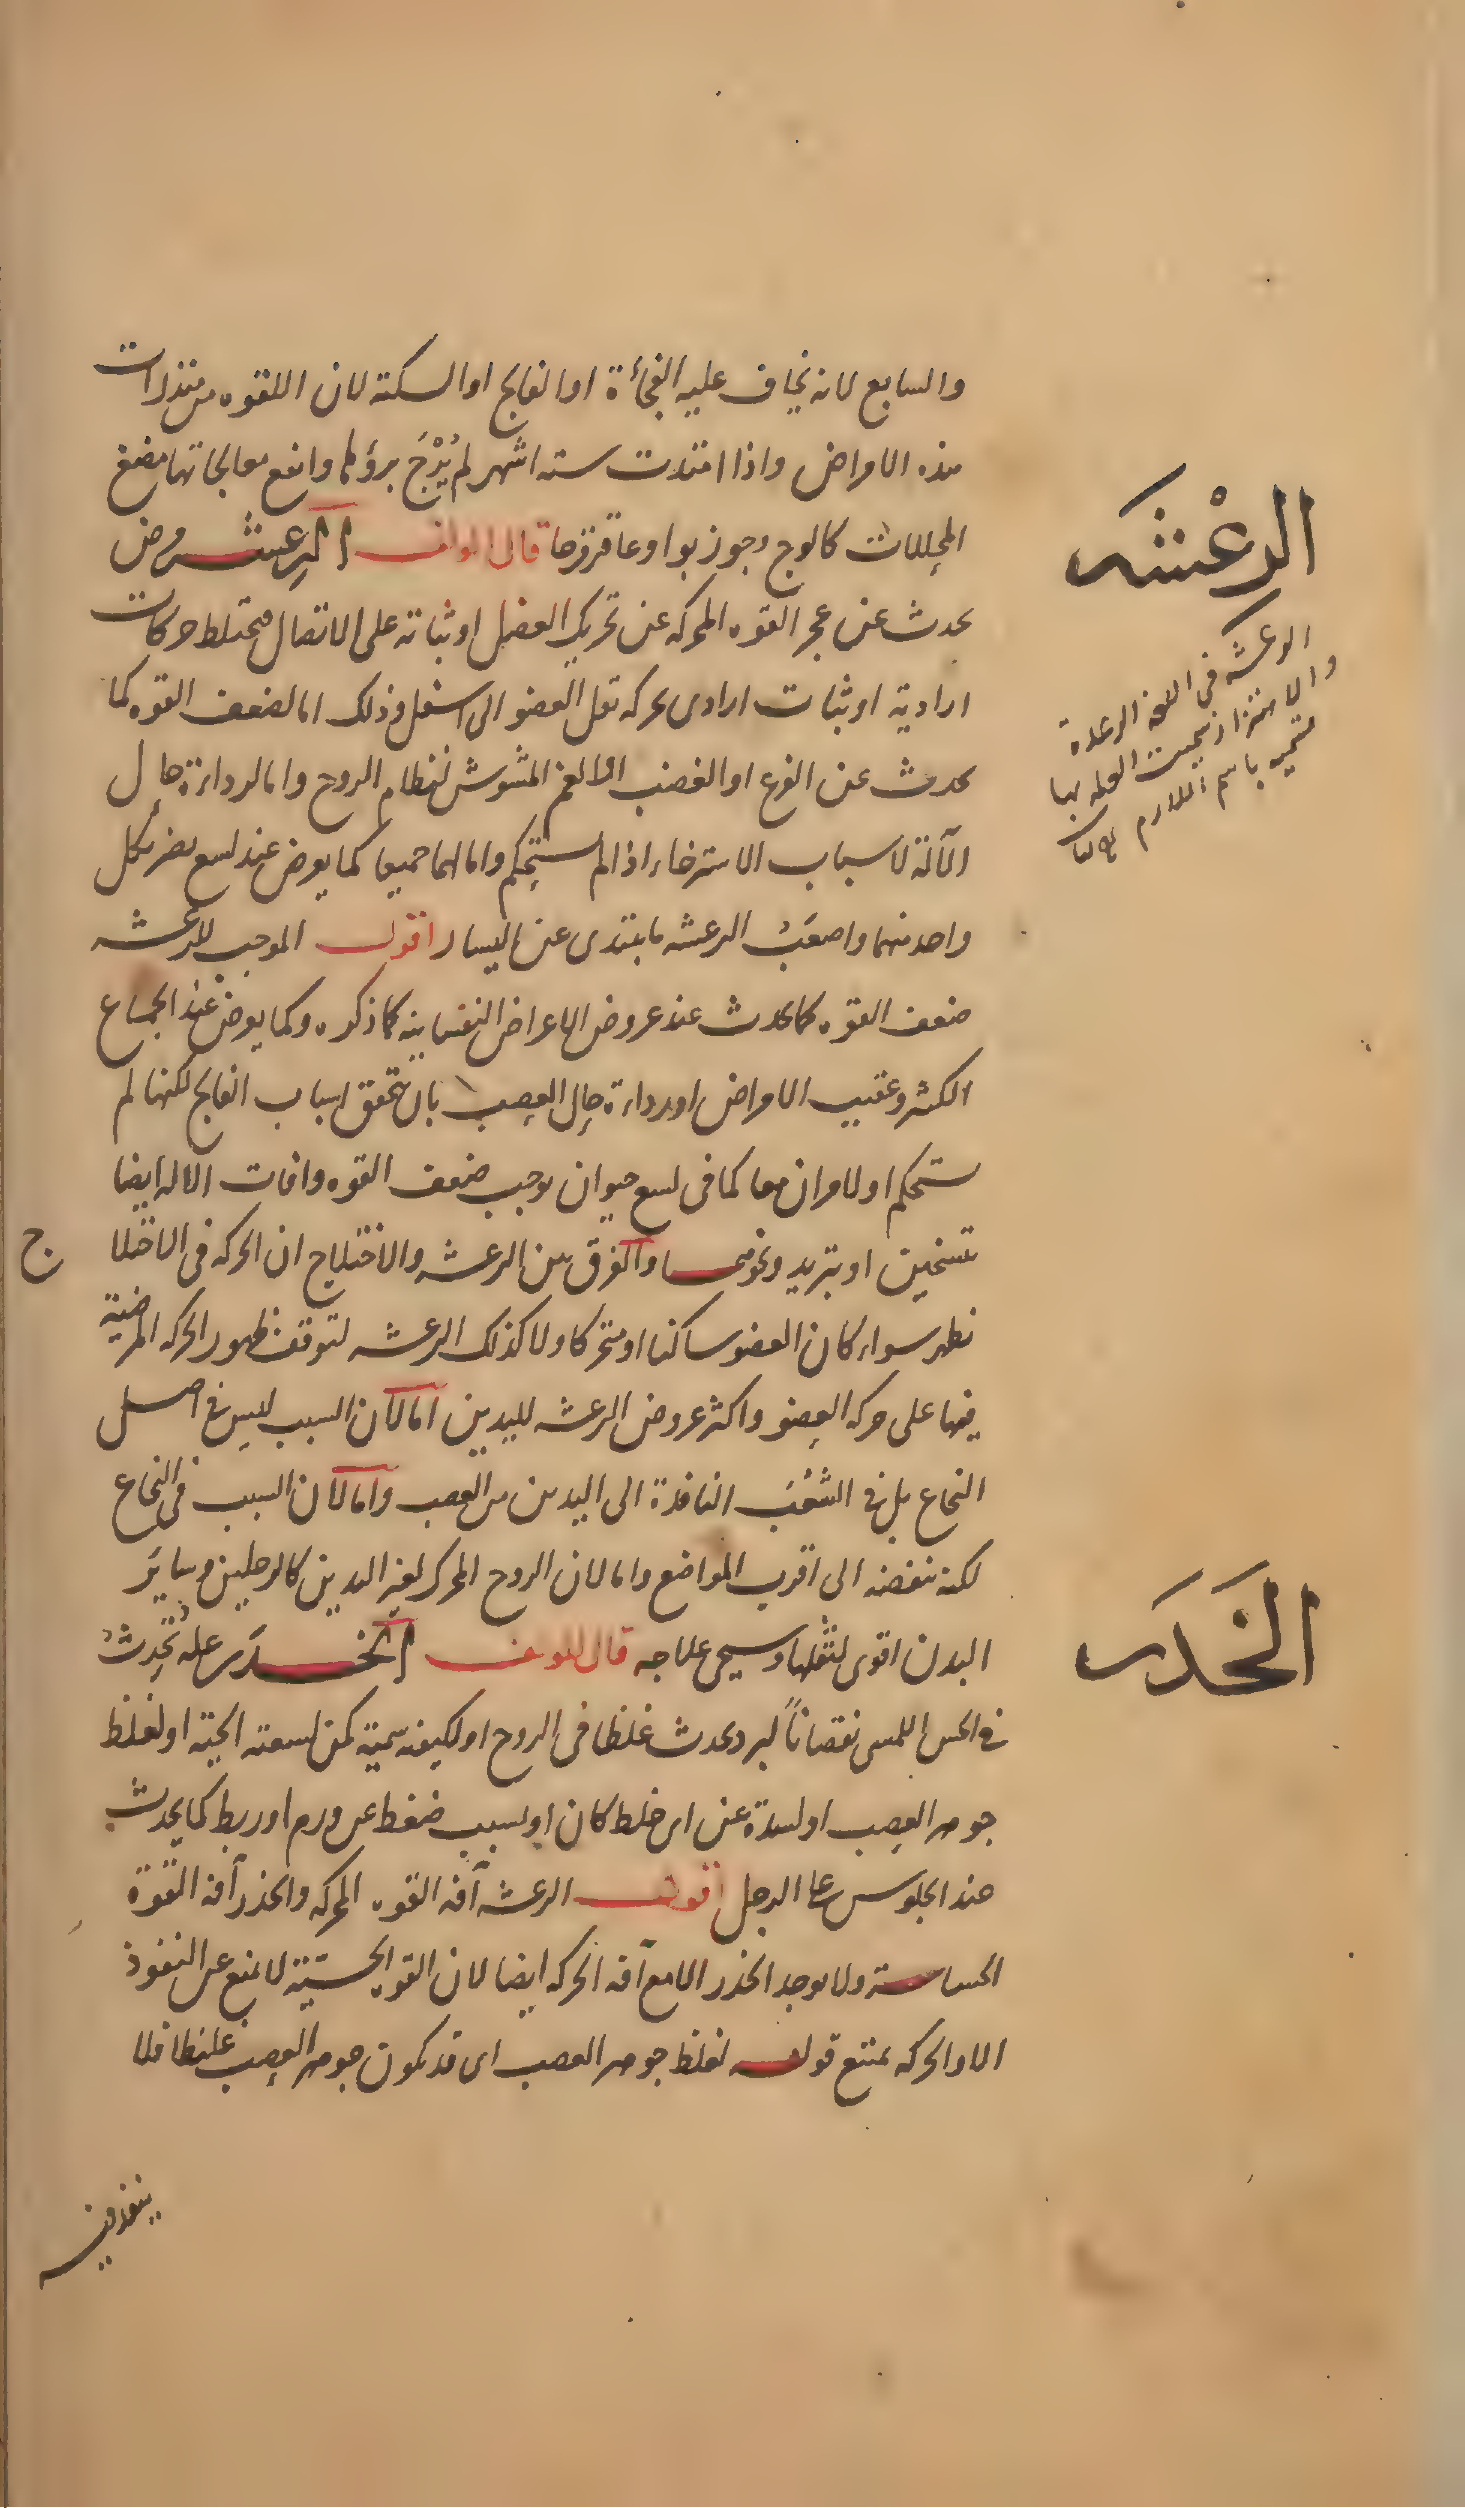 والسابع لانه يخاف عليه الفجأة او الفالج او السكته لان اللقوه من منذرات
هذه الامراض واذا امتدت سته اشهر لم يُرْجَ برؤها وانفع معالجاتها مضغ
المحللات كالوج وجوز بوا وعاقرقرحا قال المولف الرعشه مرض
يحدث عن عجز القوه المحركه عن تحريك العضل او ثباته على الاتصال فتختلط حركات
ارادية او ثبات ارادى بحركه ثقل العضو الى اسفل وذلك اما لضعف القوه كما
يحدث عن الفزع او الغضب او الغم المشوش لنظام الروح واما لرداءة حال
الآلة لاسباب الاسترخاء اذا لم تستحكم واما لهما جميعا كما يعرض عند لسع يضر بكل
واحد منهما واصعَبُ الرعشه ما يبتدى عن اليسار اقول الموجب للرعشه
ضعف القوه كما يحدث عند عروض الاعراض النفسانيه كما ذكره وكما يعرض عند الجماع
الكثير وعقيب الامراض او رداءة حال العصب بان تتحقق اسباب الفالج لكنها لم
تستحكم او لامران معا كما فى لسع حيوان يوجب ضعف القوه وافات الاله ايضا
بتسخين او تبريد ونحوهما والفرق بين الرعشه والاختلاج ان الحركه فى الاختلا
ج
تظهر سواء كان العضو ساكنا او متحركا ولا كذلك الرعشه لتوقف ظهور الحركه المرضية
فيها على حركه العضو واكثر عروض الرعشه لليدين اما لان السبب ليس فى اصل
النخاع بل فى الشُعَب النافذة الى اليدين من العصب واما لان السبب فى النخاع
لكنه تنفضه الى اقرب المواضع واما لان الروح المحرك لغير اليدين كالرجلين وسايَر
البدن اقوى لثقلها وسيجى علاجه قال المولف الخَدَر عله تُحْدِثُ
فى الحس اللمسى نقصاناً لبرد يحدث غلظا فى الروح او لكيفيه سمية كمن لسعته الحية او لغلظ
جوهر العصب او لسدة عن اى خلط كان او لسبب ضغط عن ورم او ربط كما يحدث
عند الجلوس على الرجل اقول الرعشه آفه القوه المحركه والخدر آفه القوة
الحساسة ولا يوجد الخدر الا مع آفه الحركه ايضا لان القوه الحسّيّة لا تمنع عن النفوذ
الا والحركه تمتنع قوله لغلظ جوهر العصب اى قد يكون جوهر العصب غليظا فلا
ينفذ فيه
الرِعْشَه
الرعشه فى اللغه الرعدة
والاهتزاز سميت العله بها
تسميه باسم اللازم
الخَدَر